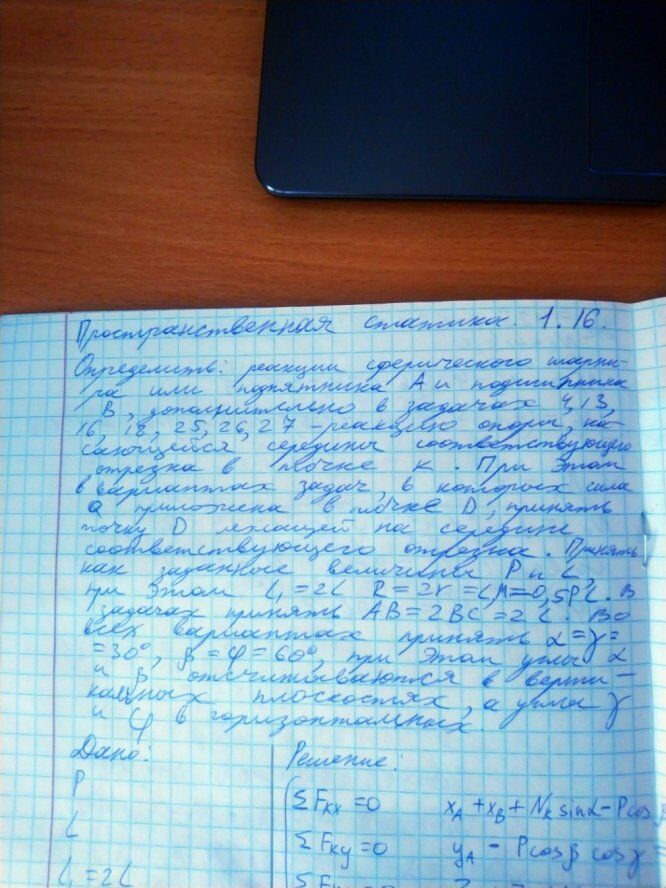 Пространственная статика. 1.16.
Определить: реакции сферического шарни-
ра или подпятника А и подшипника
В, дополнительно в задачах 4, 13,
16, 18, 25, 26, 27 - реакцию опоры, ка-
сающейся середины соответствующего
отрезка в точке К. При этом
в вариантах задач, в которых сила
Q приложена в точке D, принять
точку D лежащей на середине
соответствующего отрезка. Принять
как заданные величины P и L,
при этом L₁ = 2L R = 2r = L, M = 0,5PL. В
задачах принять AB = 2BC = 2L. Во
всех вариантах принять α = γ =
= 30°, β = φ = 60°, при этом углы α
и β отсчитываются в верти-
кальных плоскостях, а углы γ
и φ в горизонтальных.
Дано: Решение:
P
ΣFkx = 0 xA + xB + Nk sinα - P cos
L
ΣFky = 0 yA - P cosβ cosγ
L₁ = 2L